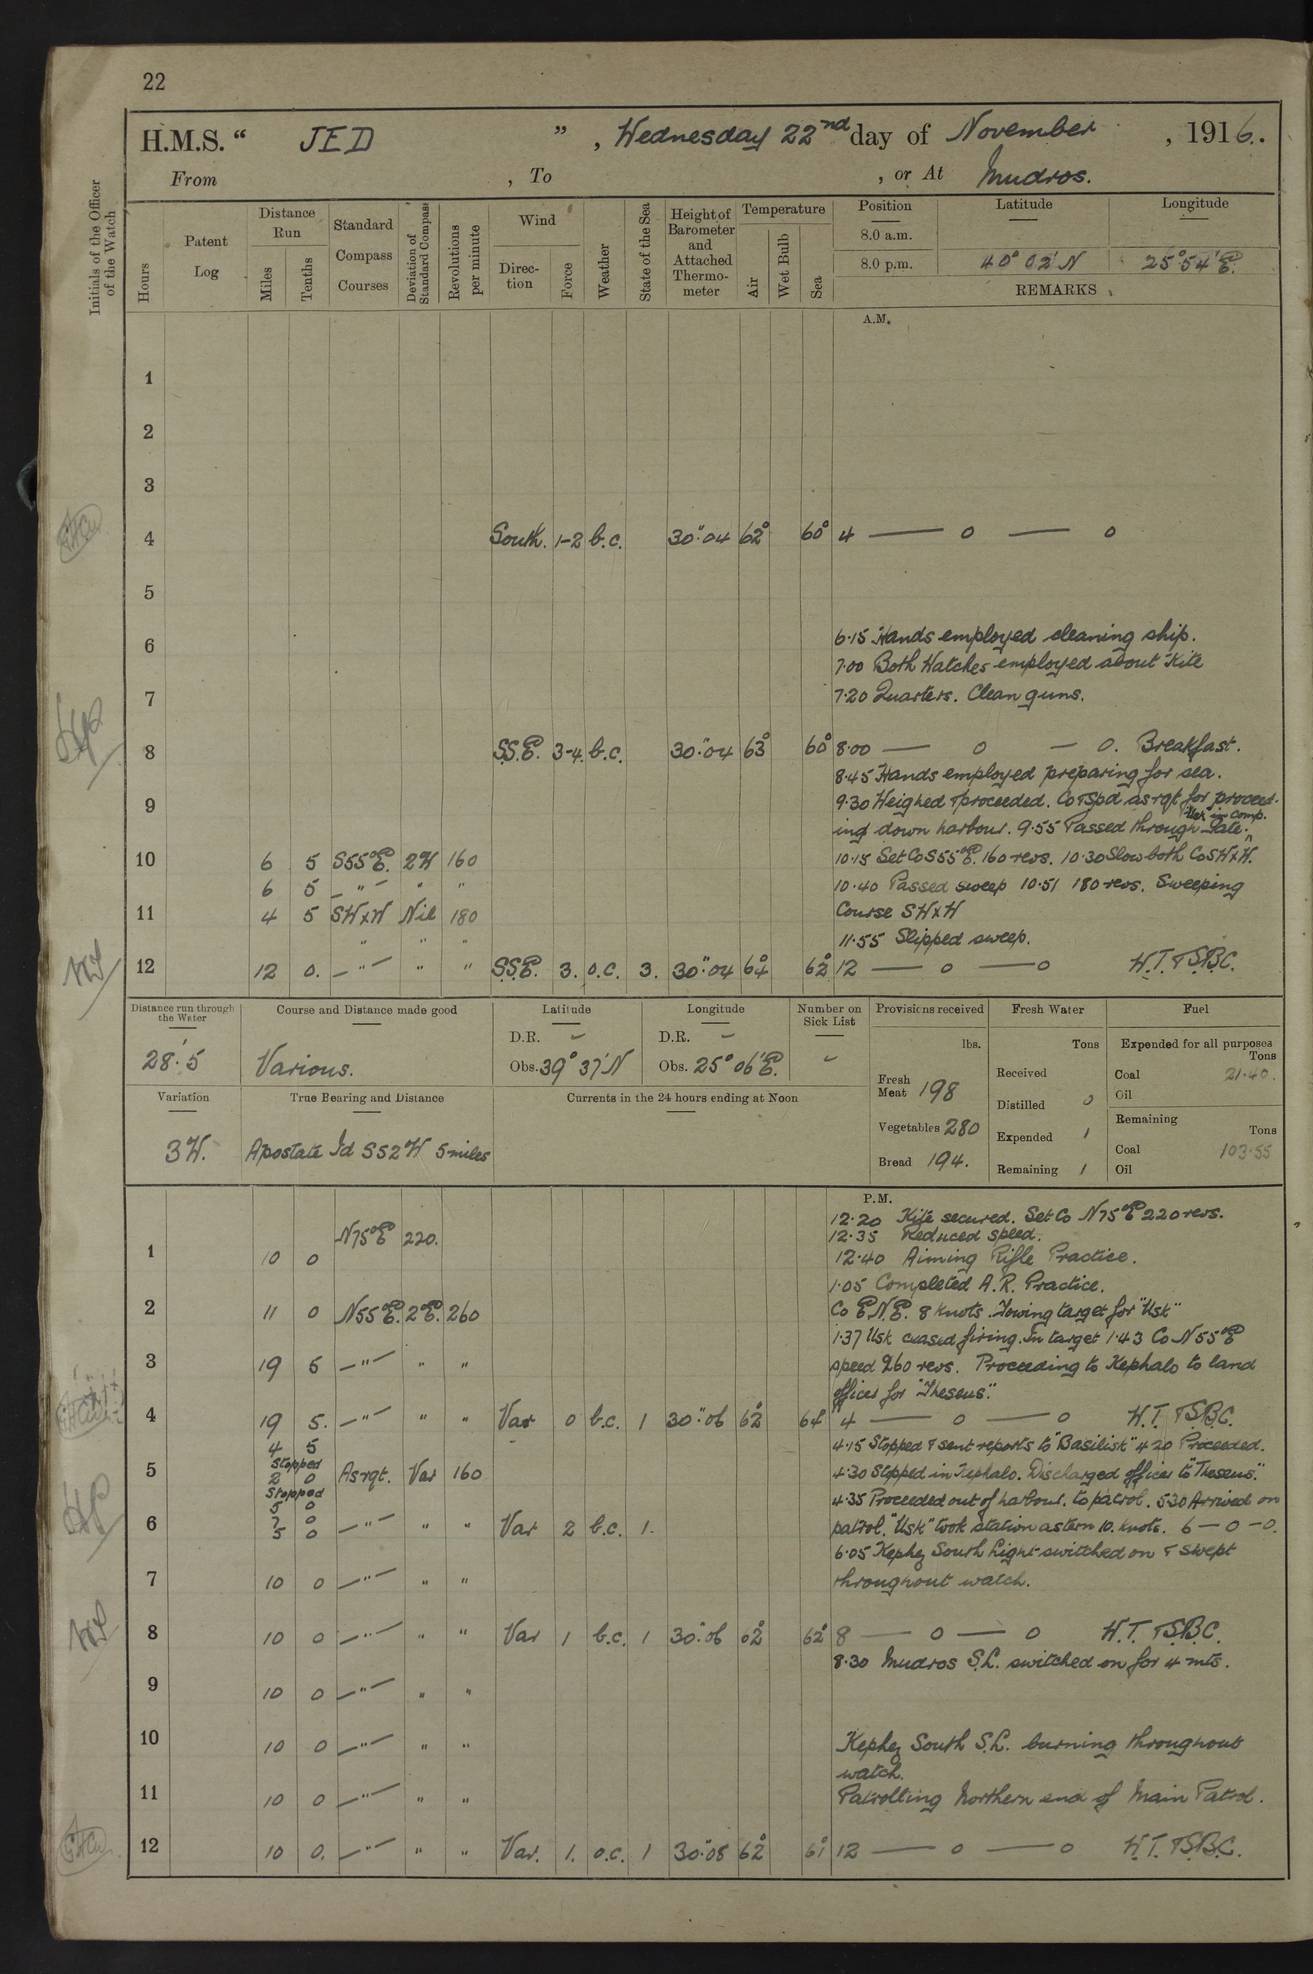 22
H.M.S. “ JED ” , Wednesday 22nd day of November , 1916..
From , To , or At Mudros.
Initials of the Officer of the Watch
Hours
Patent Log
Distance Run
Miles
Tenths
Standard Compass Courses
Deviation of Standard Compass
Revolutions per minute
Wind
Direction
Force
Weather
State of the Sea
Height of Barometer and Attached Thermometer
Temperature
Air
Wet Bulb
Sea
Position Latitude Longitude
8.0 a.m.
8.0 p.m. 40° 02' N 25° 54' E.
REMARKS
A.M.
1
2
3
4 South. 1-2 b.c. 30".04 62° 60° 4 — o — o
5
6 6.15 Hands employed cleaning ship.
7.00 Both Watches employed about Kite
7 7.20 Quarters. Clean guns.
8 S.S.E. 3-4 b.c. 30".04 63° 60° 8.00 — o — o. Breakfast.
8.45 Hands employed preparing for sea.
9 9.30 Weighed & proceeded. Co & Spd as rqt for proceed-
ing down harbour. 9.55 Passed through Gate. "Usk" in comp.
10 6 5 S55°E. 2W 160 10.15 Set Co S55°E. 160 revs. 10.30 Slow both Co SWxW.
6 5 — " — " " 10.40 Passed sweep 10.51 180 revs. Sweeping
11 4 5 SWxW Nil 180 Course SWxW
" " " 11.55 Slipped sweep.
12 12 0. — " — " " S.S.E. 3. o.c. 3. 30".04 64° 62° 12 — o — o H.T. & S.B.C.
Distance run through the Water
28'.5
Course and Distance made good
Various.
Latitude
D.R. –
Obs. 39° 37' N
Longitude
D.R. –
Obs. 25° 06' E.
Number on Sick List
–
Provisions received
lbs.
Fresh Meat 198
Vegetables 280
Bread 194.
Fresh Water
Tons
Received
Distilled 0
Expended 1
Remaining 1
Fuel
Expended for all purposes
Tons
Coal 21.40.
Oil
Remaining
Tons
Coal 103.55
Oil
Variation
3W.
True Bearing and Distance
Apostate Id S52W 5 miles
Currents in the 24 hours ending at Noon
P.M.
12.20 Kite secured. Set Co N75°E 220 revs.
N75°E 220. 12.35 Reduced speed.
1 10 0 12.40 Aiming Rifle Practice.
1.05 Completed A.R. Practice.
2 11 0 N55°E. 2°E. 260 Co E.N.E. 8 knots. Towing target for "Usk"
1.37 Usk ceased firing. In target 1.43 Co N55°E
3 19 5 — " — " " speed 260 revs. Proceeding to Kephalo to land
officer for "Theseus".
4 19 5. — " — " " Var 0 b.c. 1 30".06 62° 64° 4 — o — o H.T. & S.B.C.
4 5 4.15 Stopped & sent reports to "Basilisk" 4.20 Proceeded.
Stopped
5 2 0 As rqt. Var 160 4.30 Stopped in Kephalo. Discharged officer to "Theseus".
Stopped
5 0 4.35 Proceeded out of harbour. to patrol. 5.30 Arrived on
6 7 0 — " — " " Var 2 b.c. 1. patrol. "Usk" took station astern 10. knots. 6 — o — o.
5 0 6.05 Kephez South Light switched on & swept
7 10 0 — " — " " throughout watch.
8 10 0 — " — " " Var 1 b.c. 1 30".06 62° 62° 8 — o — o H.T. & S.B.C.
8.30 Mudros S.L. switched on for 4 mts.
9 10 0 — " — " "
10 10 0 — " — " " Kephez South S.L. burning throughout
watch.
11 10 0 — " — " " Patrolling Northern end of Main Patrol.
12 10 0. — " — " " Var. 1. o.c. 1 30".08 62° 61° 12 — o — o H.T. & S.B.C.